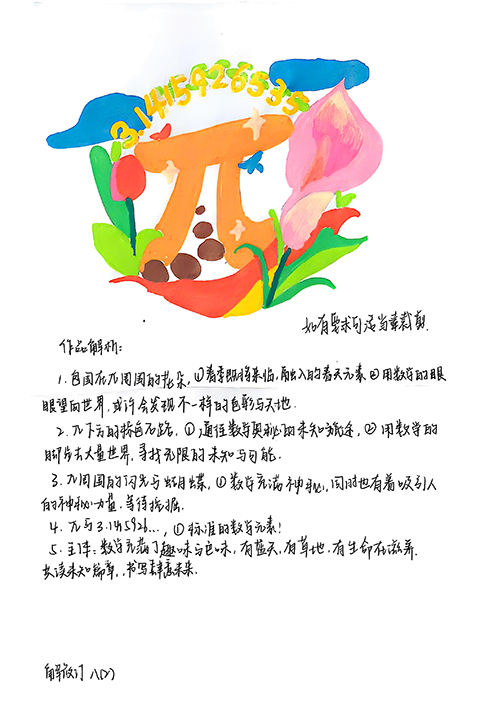 3.1415926535
π
如有要求可适当裁剪.
作品解析:
1. 包围在π周围的花朵, ①春季即将来临, 融入的春天元素 ②用数学的眼
眼望向世界, 或许会发现不一样的色彩与天地.
2. π下方的棕色石路, ①通往数学奥秘的未知旅途, ②用数学的
脚步去丈量世界, 寻找无限的未知与可能.
3. π周围的闪光与蝴蝶, ①数学充满神秘, 同时也有着吸引人
的神秘力量, 等待挖掘.
4. π与3.1415926..., ①标准的数学元素!
5. 主体: 数学充满了趣味与色味, 有蓝天, 有草地, 有生命在滋养.
共读未知篇章, 书写肆意未来.
解放门 八(7)